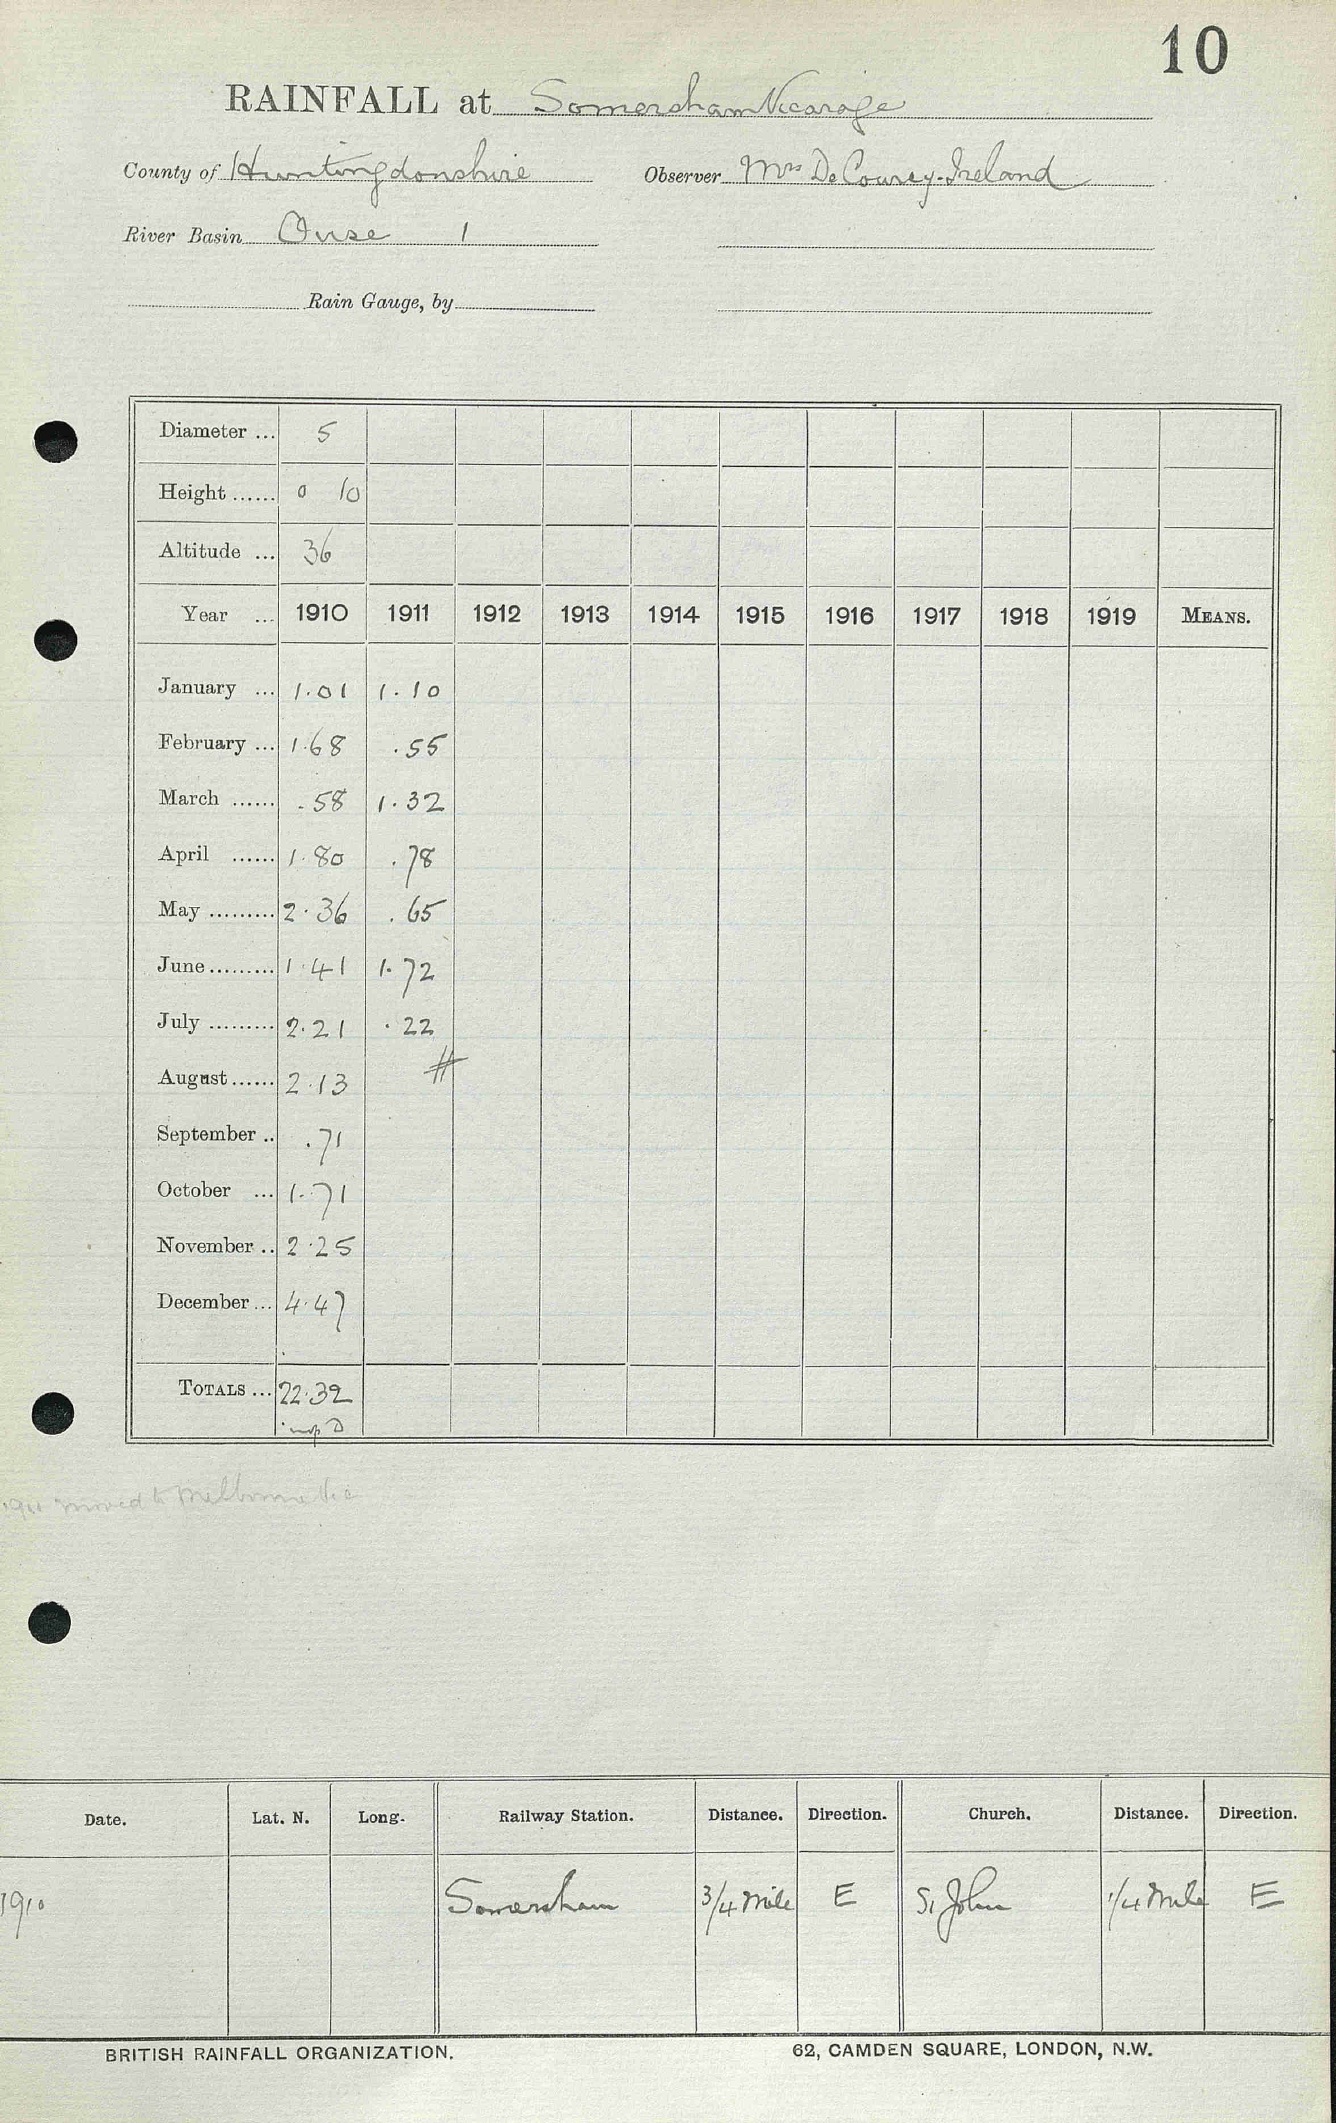 10
RAINFALL at Somersham Vicarage
County of Huntingdonshire Observer Mrs De Courcy-Ireland
River Basin Ouse 1
Rain Gauge, by
Diameter ... 5
Height ...... 0 10
Altitude ... 36
Year ... 1910 1911 1912 1913 1914 1915 1916 1917 1918 1919 MEANS.
January ... 1.01 1.10
February ... 1.68 .55
March ...... .58 1.32
April ...... 1.80 .78
May ......... 2.36 .65
June ......... 1.41 1.72
July ......... 2.21 .22
August ...... 2.13 #
September .. .71
October ... 1.71
November .. 2.25
December ... 4.47
TOTALS ... 22.32
1911 moved to Melbourne Vic
Date. Lat. N. Long. Railway Station. Distance. Direction. Church. Distance. Direction.
1910 Somersham 3/4 Mile E St John 1/4 Mile E
BRITISH RAINFALL ORGANIZATION. 62, CAMDEN SQUARE, LONDON, N.W.